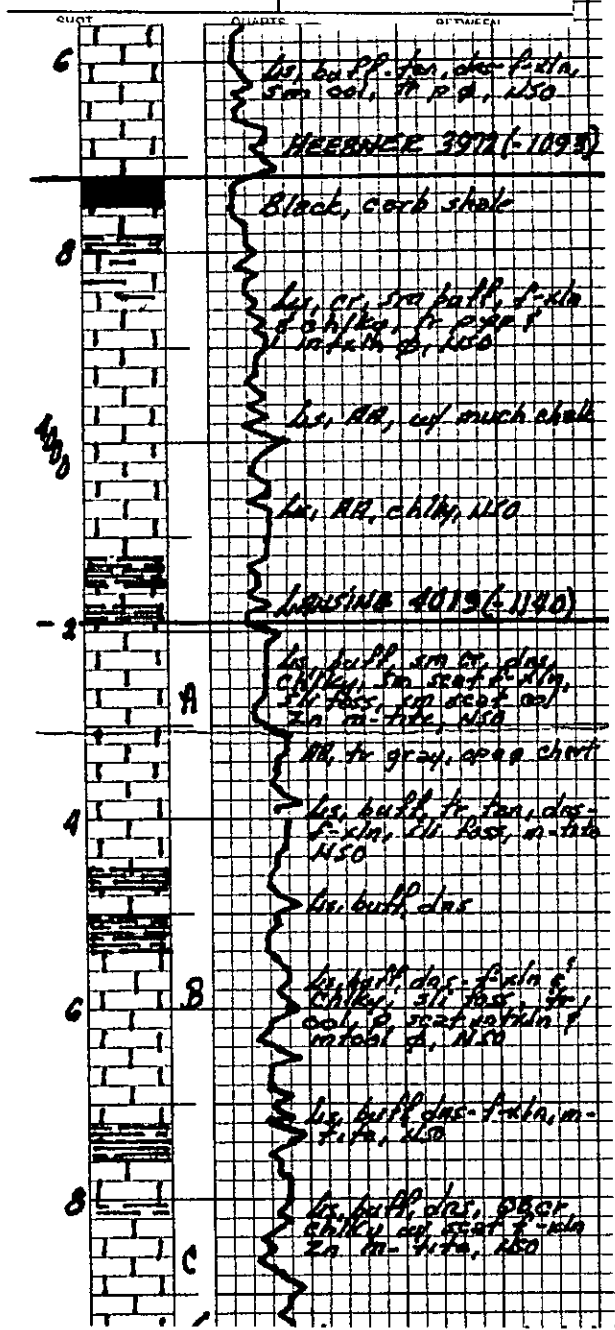 SHOT QUARTS BETWEEN
6
Ls, buff-tan, dns-f-xln,
sm ool, tr p ø, NSO
HEEBNER 3972 (-1093)
Black, carb shale
8
Ls, cr, sm buff, f-xln
& chlky, tr p-pp &
intxln ø, NSO
4000
Ls, AA, w/ much chalk
Ls, AA, chlky, NSO
LANSING 4019 (-1140)
2
Ls, buff, sm cr, dns,
chlky, sm scat f-xln,
sli foss, sm scat ool
Zn m-tite, NSO
A
AA, tr gray, opaq chert
4
Ls, buff, tr tan, dns-
f-xln, sli foss, m-tite
NSO
Ls, buff, dns
B
6
Ls, buff, dns-f-xln &
chlky, sli foss, tr
ool, p scat intxln &
intool ø, NSO
Ls, buff dns-f-xln, m-
tite, NSO
8
Ls, buff, dns, cr,
chlky w/ scat f-xln
Zn m-tite, NSO
C